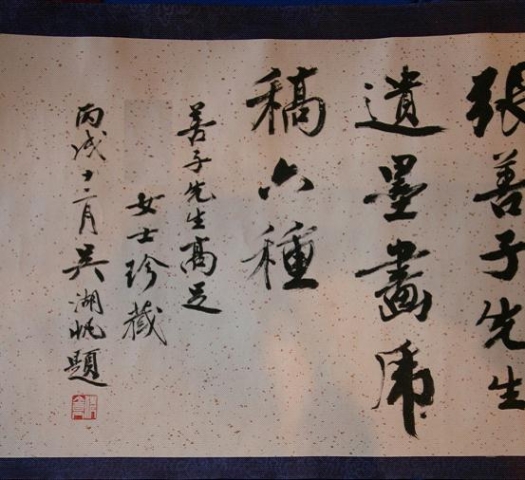 張善子先生
遺墨畫虎
稿六種
善子先生高足
女士珍藏
丙戌十二月吳湖帆題